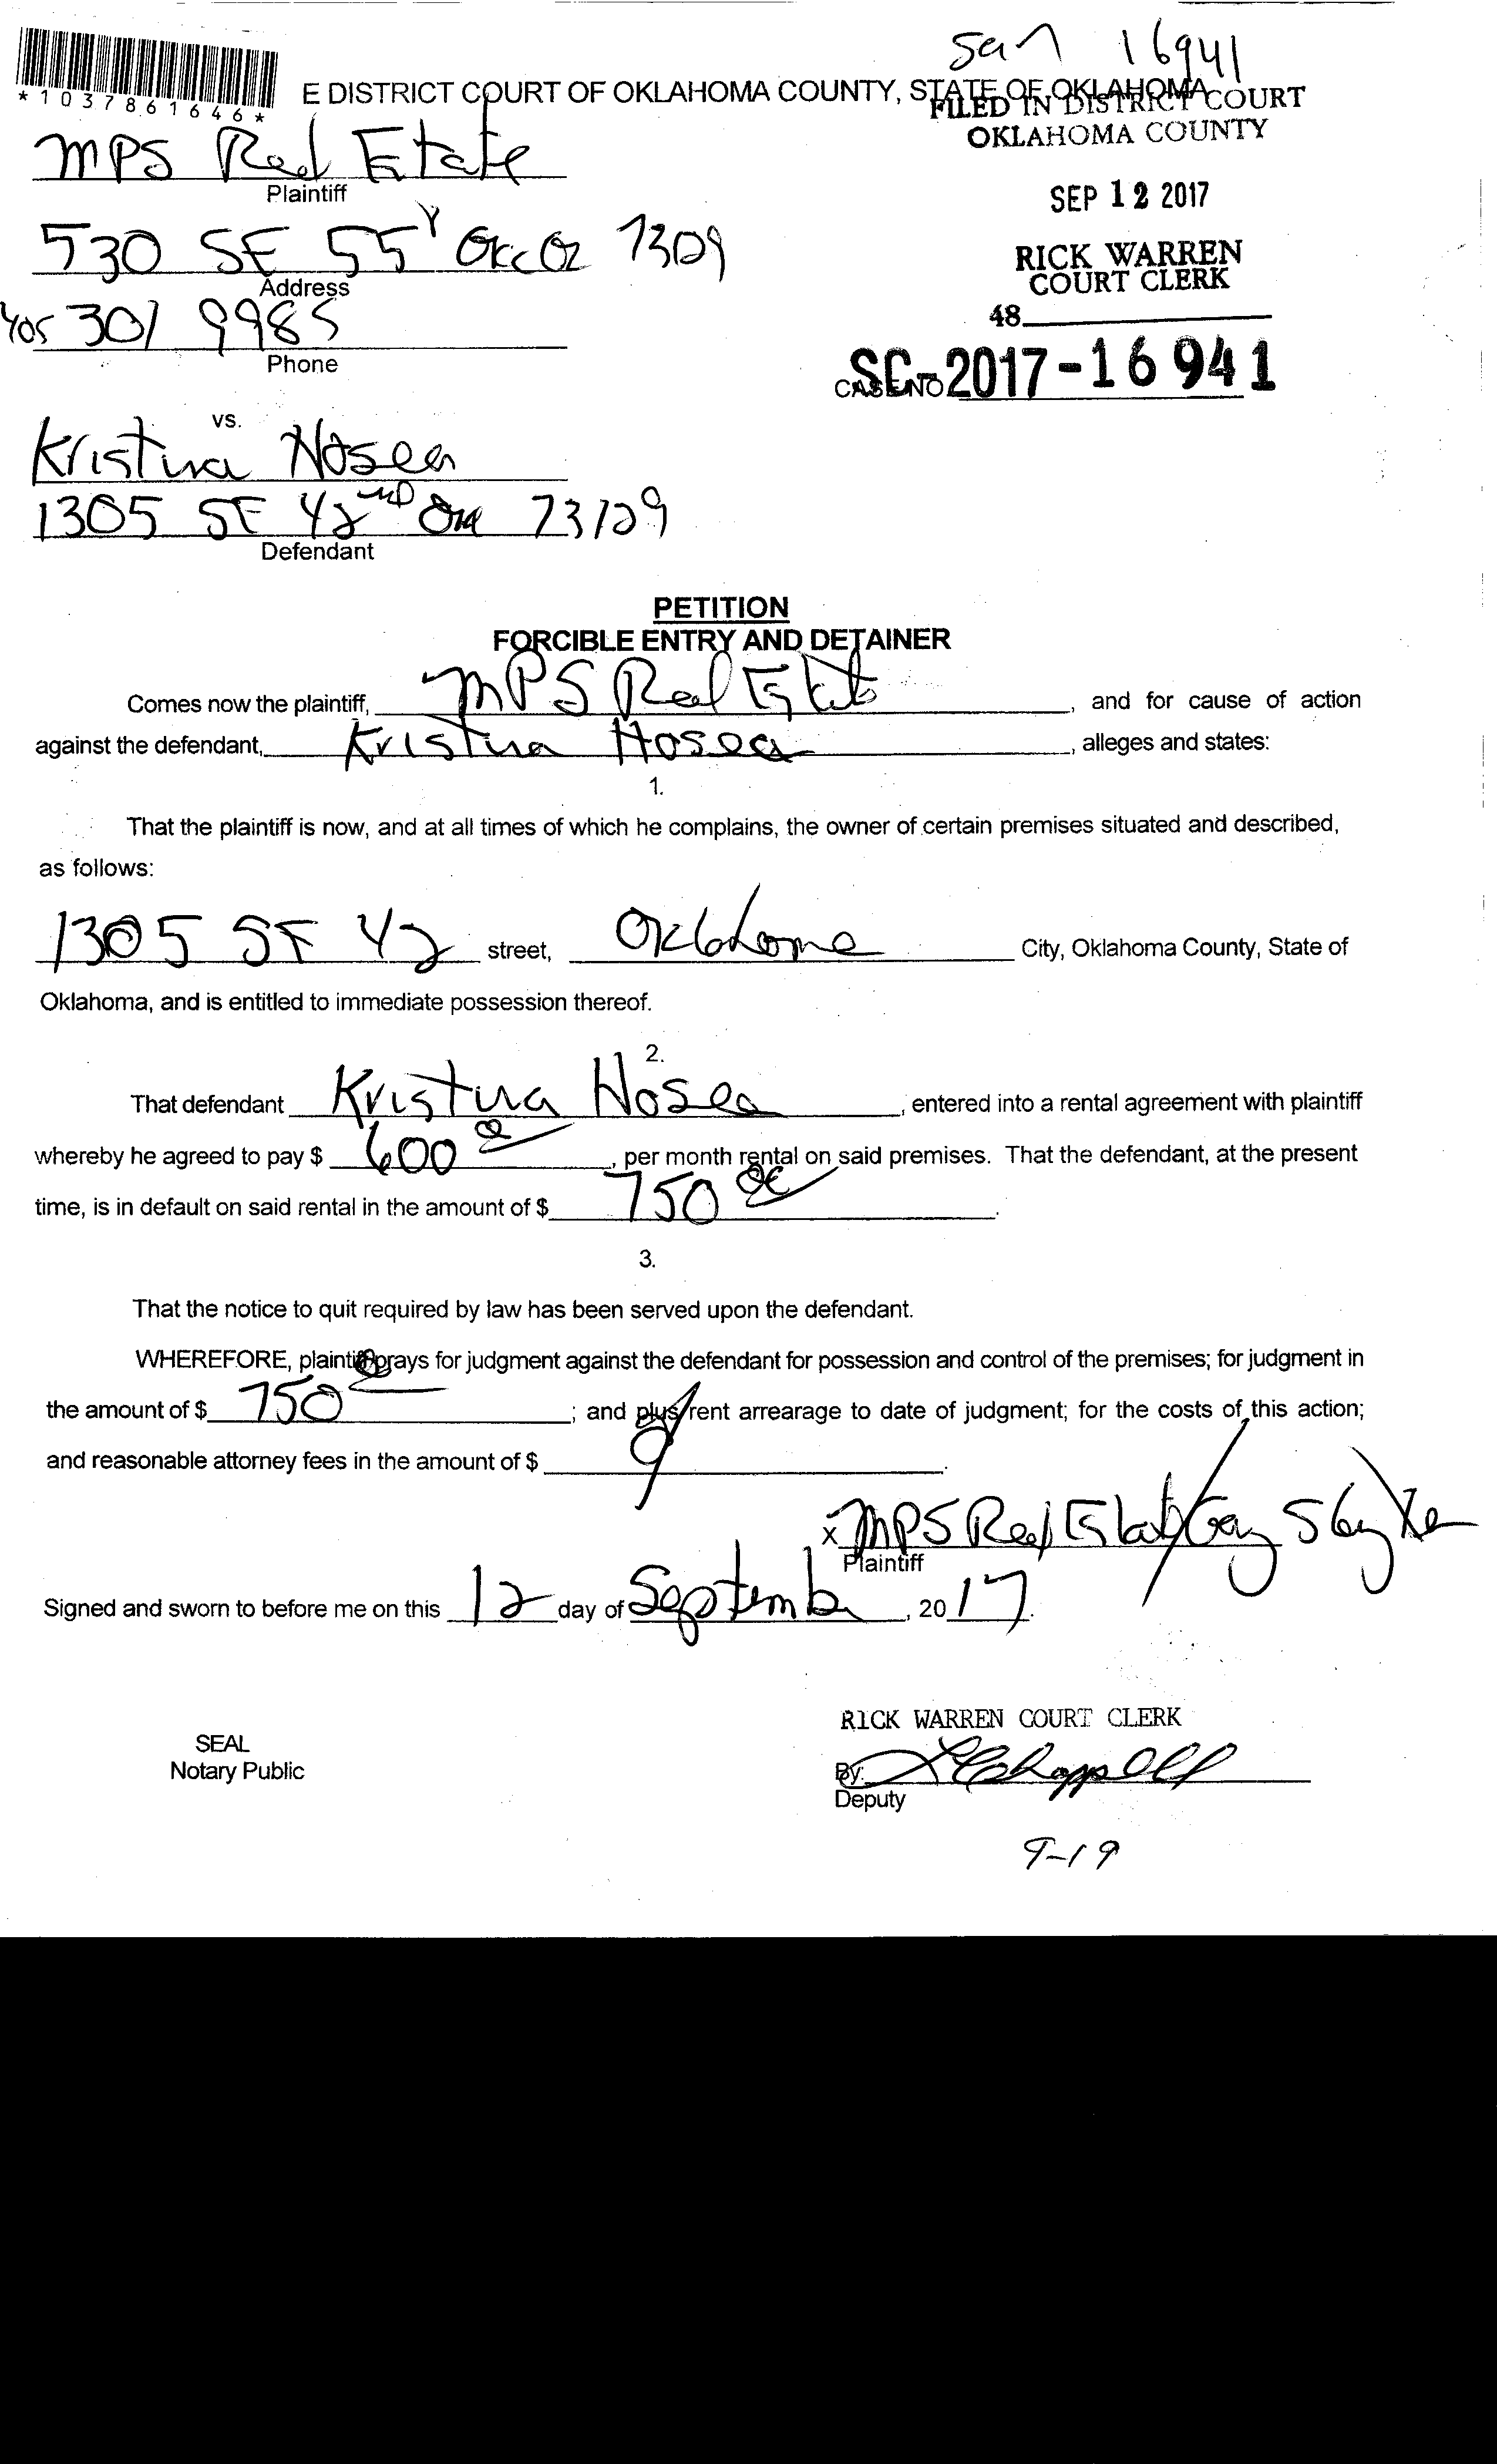 San 16941
*1037861646*
E DISTRICT COURT OF OKLAHOMA COUNTY, STATE OF OKLAHOMA
FILED IN DISTRICT COURT
OKLAHOMA COUNTY
MPS Real Estate
Plaintiff
SEP 12 2017
530 SE 55 OKC OK
Address
RICK WARREN
COURT CLERK
405 301 9985
Phone
48
CASE NO SC-2017-16941
vs.
Kristina Hosea
1305 SE 42ND 73129
Defendant
PETITION
FORCIBLE ENTRY AND DETAINER
Comes now the plaintiff, MPS Real Estate, and for cause of action
against the defendant, Kristina Hosea, alleges and states:
1.
That the plaintiff is now, and at all times of which he complains, the owner of certain premises situated and described,
as follows:
1305 SE 42 street, Oklahoma City, Oklahoma County, State of
Oklahoma, and is entitled to immediate possession thereof.
2.
That defendant Kristina Hosea, entered into a rental agreement with plaintiff
whereby he agreed to pay $ 600 00, per month rental on said premises. That the defendant, at the present
time, is in default on said rental in the amount of $ 750 00.
3.
That the notice to quit required by law has been served upon the defendant.
WHEREFORE, plaintiff prays for judgment against the defendant for possession and control of the premises; for judgment in
the amount of $ 750 00; and plus rent arrearage to date of judgment; for the costs of this action;
and reasonable attorney fees in the amount of $
x MPS Real Estate/
Plaintiff
Signed and sworn to before me on this 12 day of September, 2017.
RICK WARREN COURT CLERK
SEAL
Notary Public
By:
Deputy
9-19